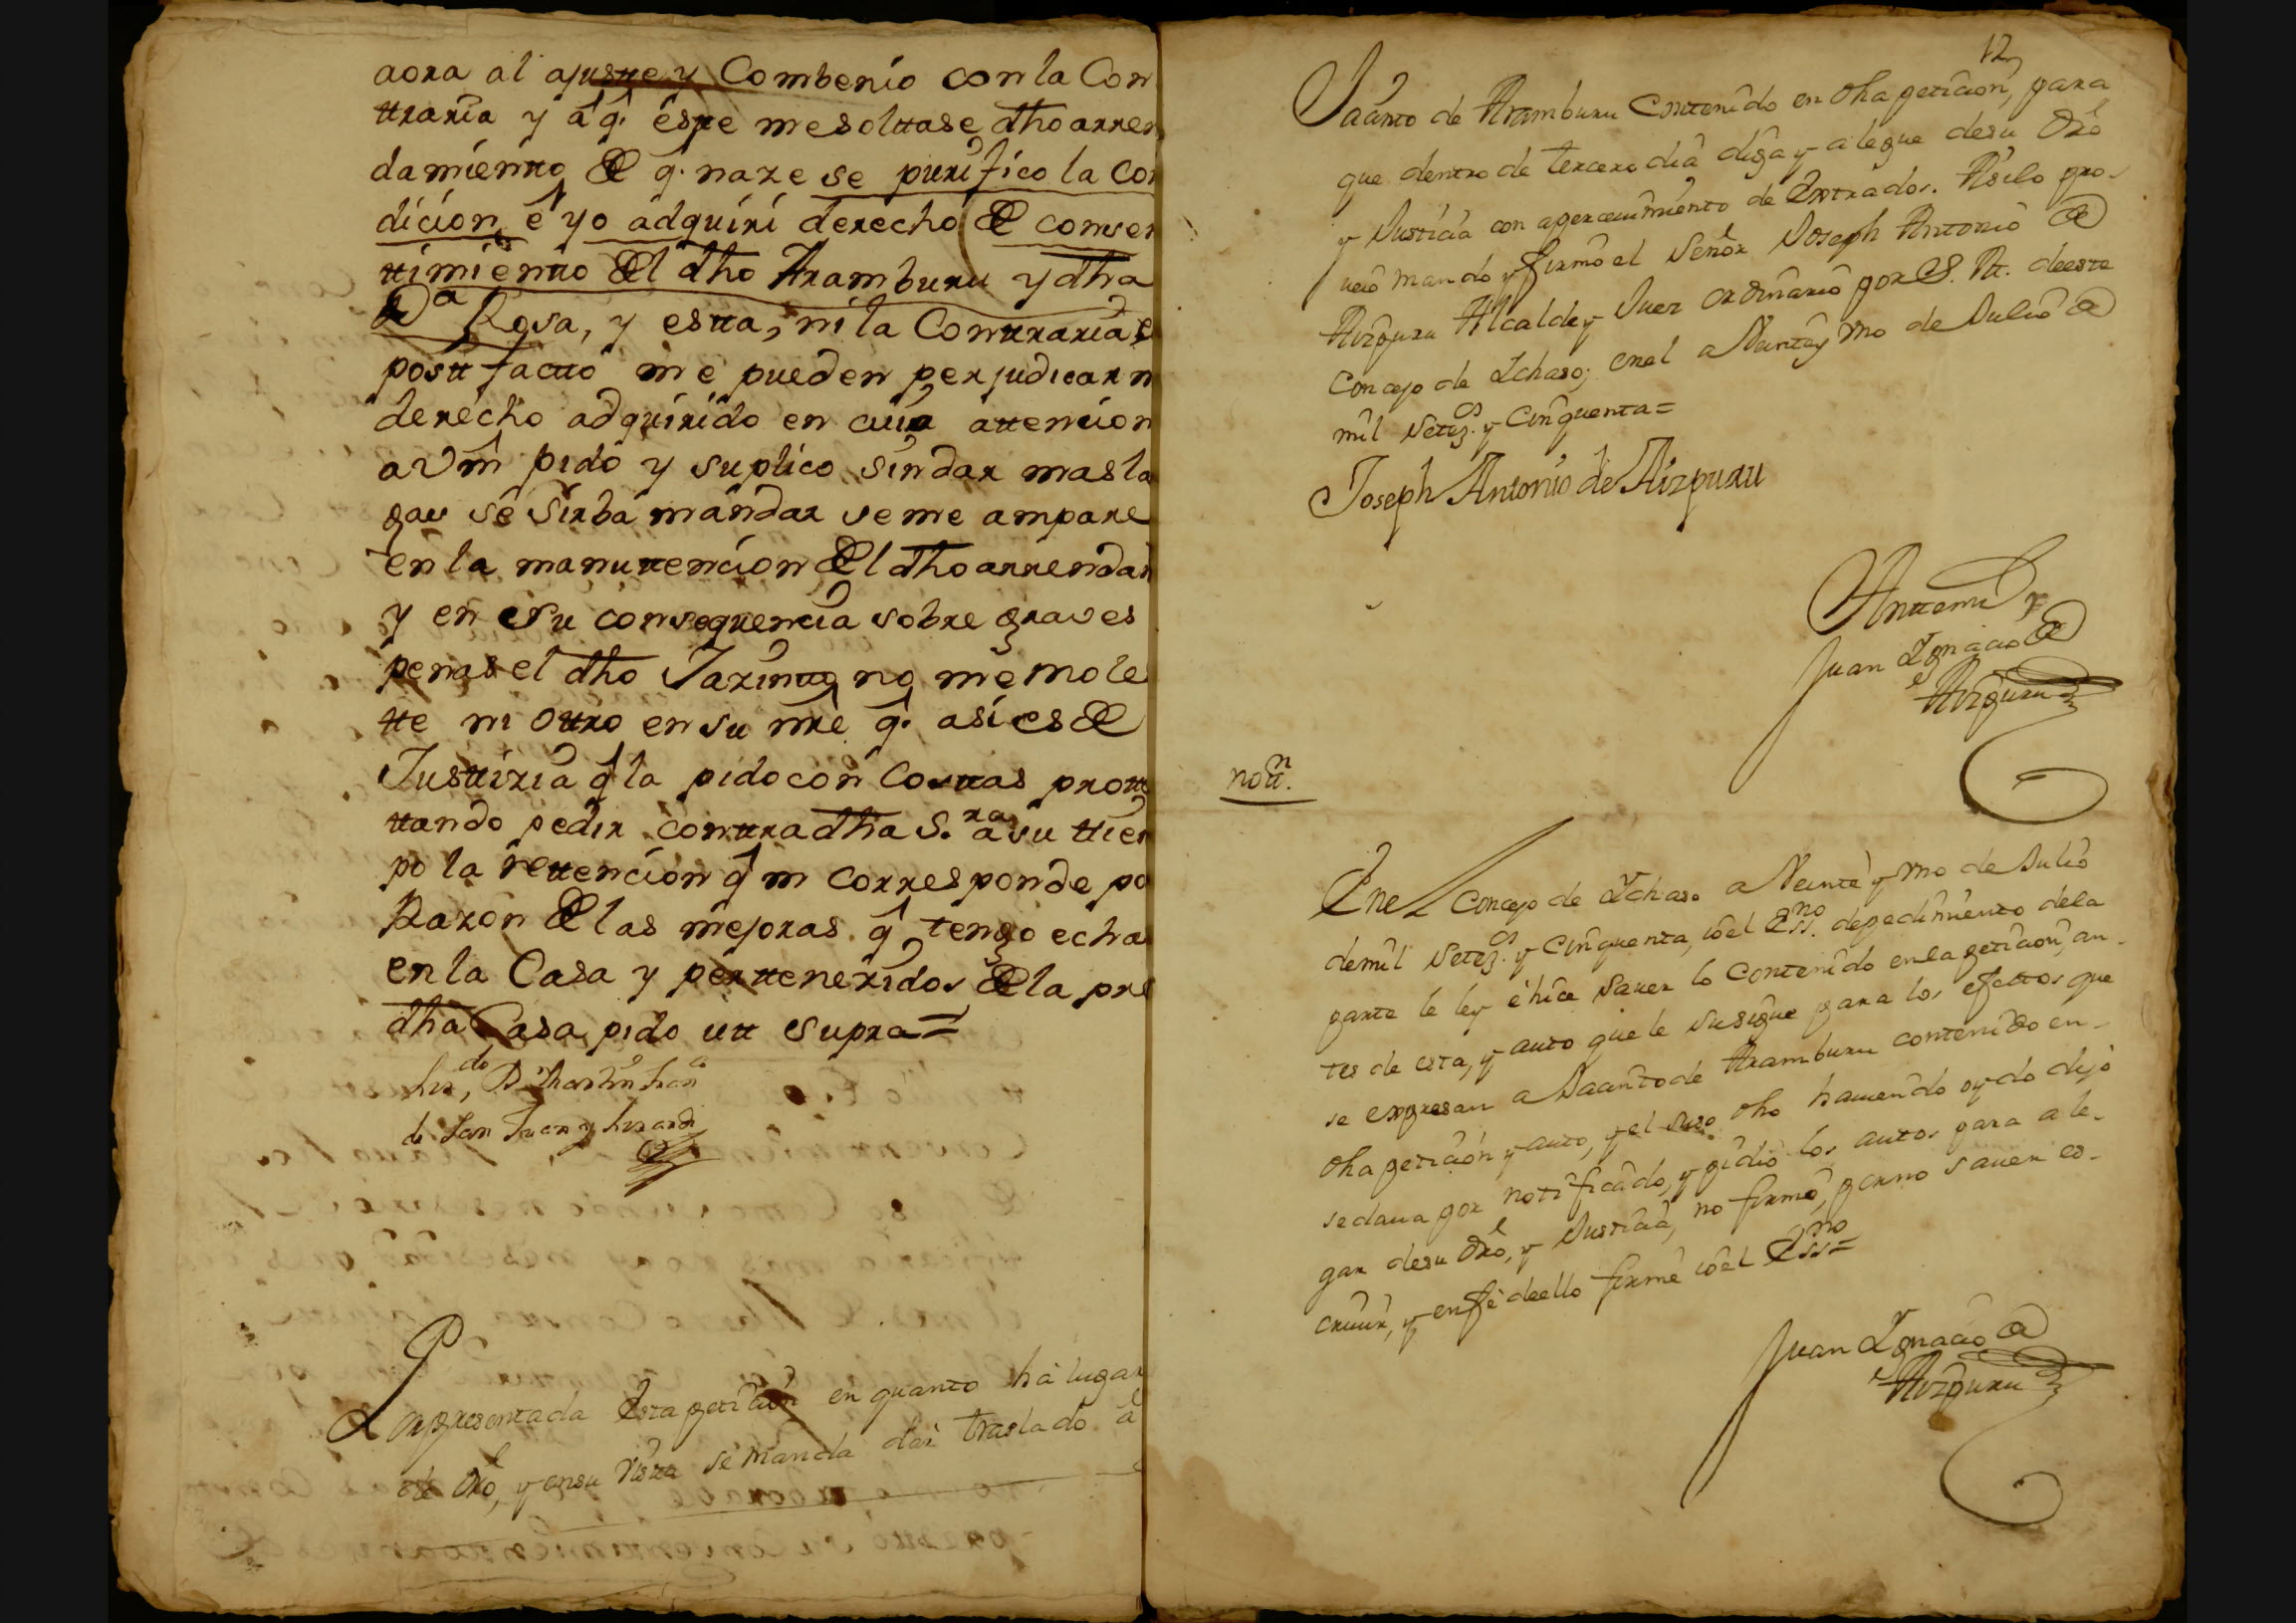 aora al ajustte y Combenio con la Con
ttraria y â q̂. éste me solttase dho arren
damientto de q̂. naze se purifico la con
dicion é yo adquiri derecho de consen
ttimientto del dho Aramburu y dha
Dª Rosa, y estta, ni la Conttraria
postt facttó me pueden perjudicar
derecho adquirido en cuia attencion
a Vm̂ pido y suplico sin dar mas la
gar se sirba mandar se me ampare
en la manuttencion del dho arrendam
y en su consequencia sobre graves
penas el dho Jazintto no me mole
tte ni ottro en su nr̂e q̂. asi es de
Justtizia q̂ la pido con Costtas prottes
ttando pedir conttra dha S.ra a su ttiem
po la rettencion q̂ m corresponde po
Razon de las mejoras q̂ tengo echas
en la Casa y perttenezidos de la pre
dha Casa pido utt supra=
Liz.do, Dn Martin Fran.co
de San Juan y Lizardi
Por presentada Esta peticion en quanto há lugar
de Dr̂o, y en su Vistta se manda dar traslado á
12
Jacinto de Aramburu Contenido en dha peticion, para
que dentro de tercero dia diga y alegue de su Dr̂o
y Justicia con apercevimiento de Extrados. Asilo pro-
veió mando y firmó el Señor Joseph Antonio de
Aizpuru Alcalde y Juez ordinario por S. M. de este
Concejo de Ichaso; en el a Veinte y Vno de Julio de
mil Setez.os y Cinquenta=
Joseph Antonio de Aizpuru
Anttemi
Juan Ygnacio de
Aizpuru
nott.n
En el Concejo de Ychaso a Veinte y Vno de Julio
de mil Setez.os y Cinquenta, io el Ess.no de pedimiento de la
parte le ley é hice Saver lo Contenido en la peticion, an-
tes de esta, y auto que le susigue para los efecttos que
se expresan a Jacinto de Aramburu contenido en
dha peticion y auto, y el suso dho haviendo oydo dijó
se dava por notificado, y pidió los autos para ale-
gar de su Dr̂o, y Justicia, no firmó, por no saver es-
crivir, y en fé de ello firmé io el Ess.no=
Juan Ygnacio de
Aizpuru